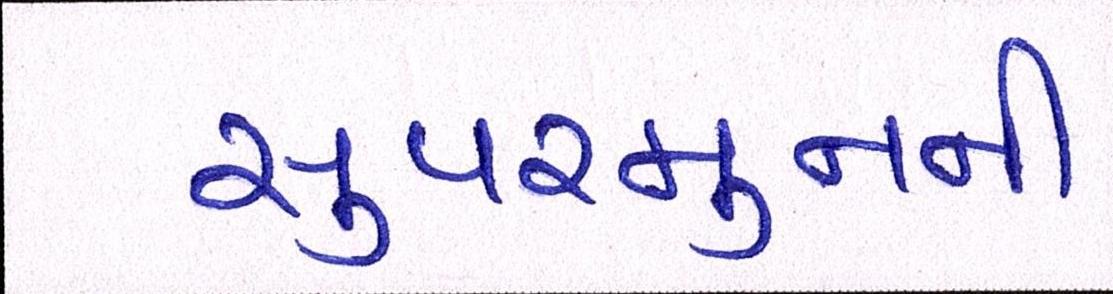 સુપરમુનની